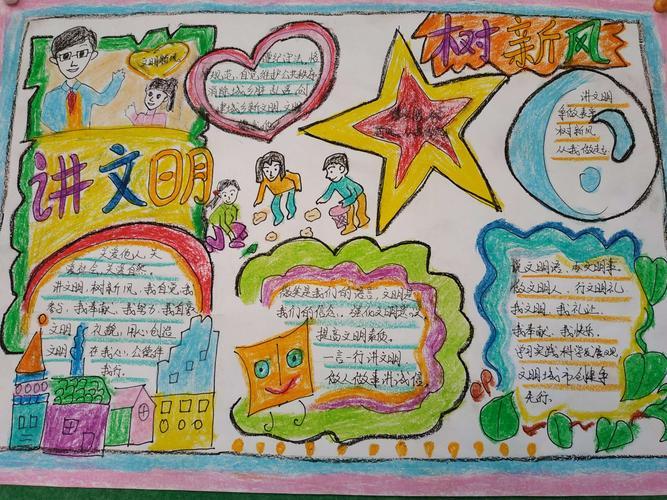 文明新风
讲文明
树新风
遵纪守法，恪
规范，自觉维护公共秩序
消除城乡脏乱差，创
建城乡新文明，文明
讲文明
争做表率
树新风
从我做起
文爱他人，关
爱社会，关爱自然
讲文明，树新风，我自觉，我
我奉献，我努力，我自豪
文明，礼貌，用心创造
文明，在我心，公德伴
我行。
微笑是我们的语言，文明是
我们的信念，强化文明意识
提高文明素质
一言一行讲文明
做人做事讲诚信
说文明话，办文明事，
做文明人，行文明礼
我文明，我礼让，
我奉献，我快乐，
学习实践科学发展观
文明城市创建争
先行。